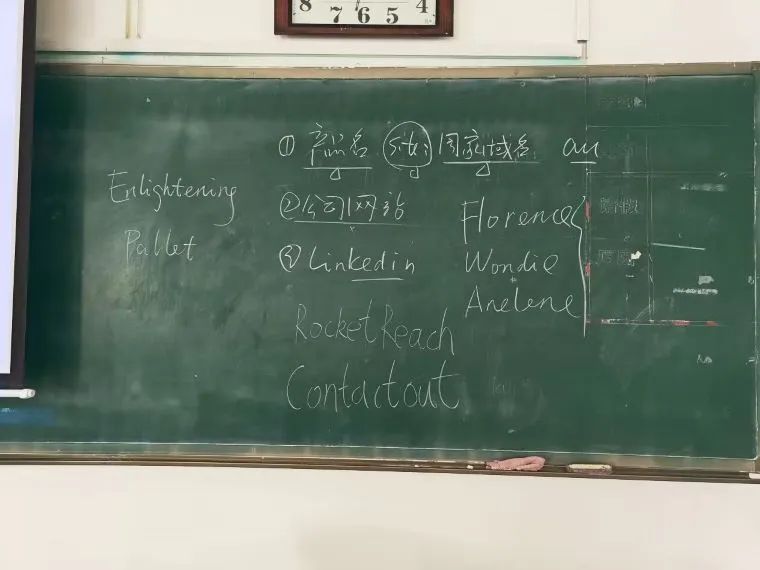 8 7 6 5 4
① 产品名 site: 国家域名 au
Enlightening
Pallet
② 公司网站
③ Linkedin
RocketReach
Contactout
Florence
Wondie
Anelene